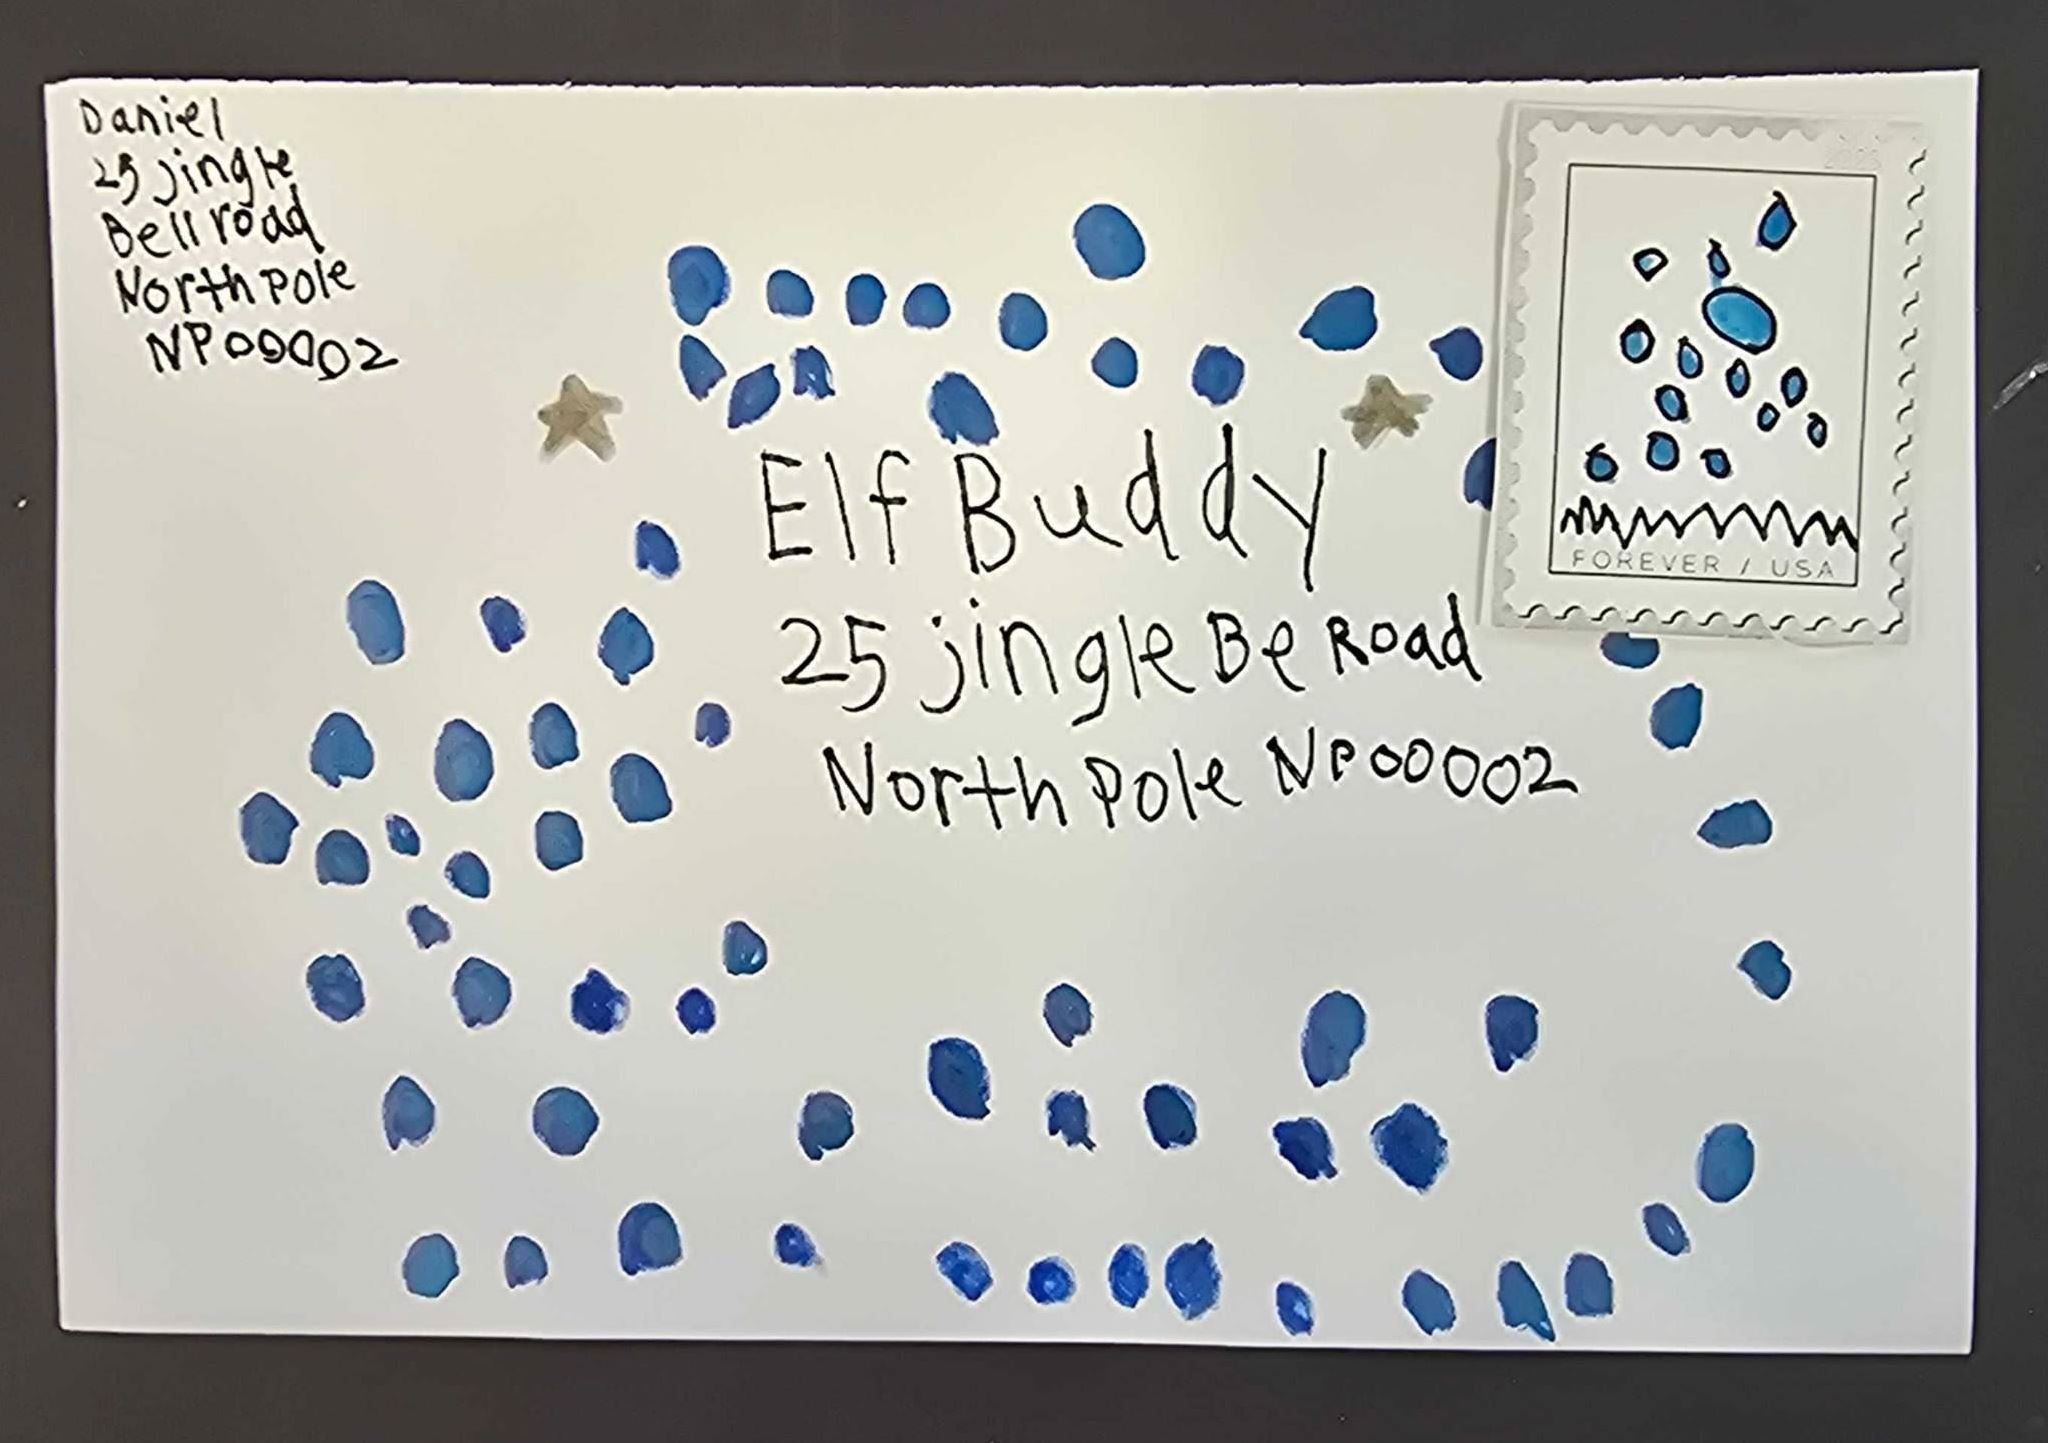 Daniel
25 jingle
Bell road
North pole
NP00002
FOREVER / USA
Elf Buddy
25 jingle Be Road
North pole NP00002